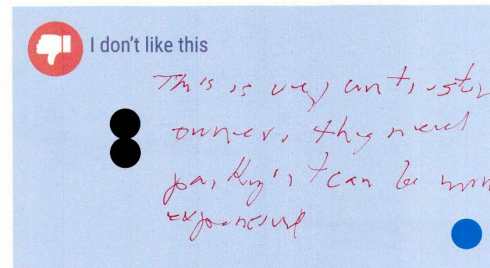 I don't like this
This is very anti
owner, they need
parking, it can be more
expensive